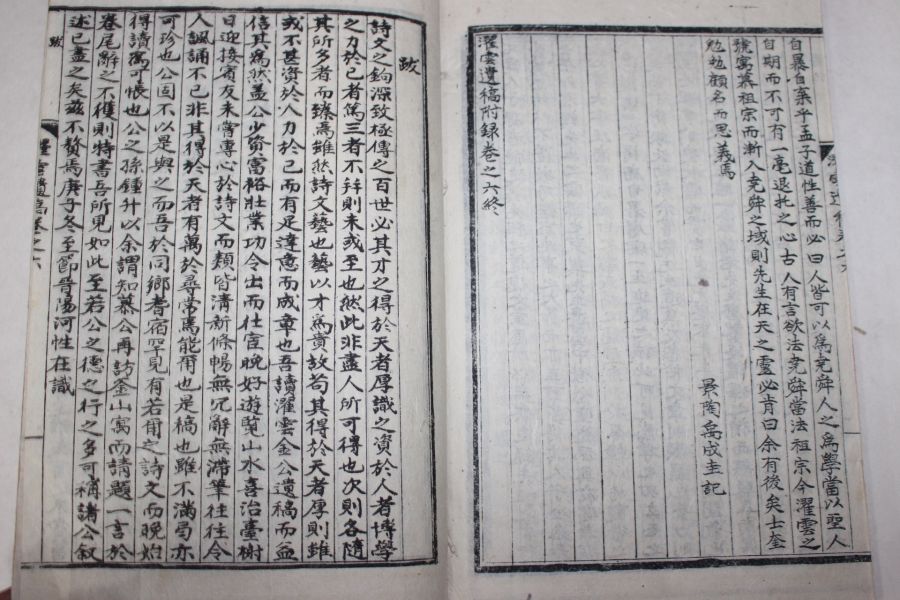 自暴自棄乎孟子道性善而必曰人皆可以爲堯舜人之爲學當以聖人
自期而不可有一毫退托之心古人有言欲法堯舜當法祖宗今濯雲之
號寓慕祖宗而漸入堯舜之域則先生在天之靈必肯曰余有後矣士奎
勉旃顧名而思義焉
景陶禹成圭記
濯雲遺稿附錄卷之六終
跋
詩文之鉤深致極傳之百世必其才之得於天者厚識之資於人者博學
之力於己者篤三者不幷則未或至也然此非盡人所可得也次則各隨
其所多者而臻焉雖然詩文藝也藝以才爲貴故苟其得於天者厚則雖
或不甚資於人力於己而有足達意而成章也吾讀濯雲金公遺稿而益
信其爲然盖公少資富裕壯業功令出而仕宦晩好遊覽山水喜治臺樹
日迎接賓友未嘗專心於詩文而類皆淸新條暢無冗辭無滯筆往往令
人諷誦不已非其得於天者有萬於尋常焉能爾也是稿也雖不滿局亦
可珍也公固不以是與之而吾於同鄕耆宿罕見有若爾之詩文而晩始
得讀寓可恨也公之孫鍾升以余謂知慕公再訪釜山寓而請題一言於
卷尾辭之不獲則特書吾所見如此至若公之德之行之多可稱諸公叙
述已盡之矣玆不贅焉庚子冬至節晉陽河性在識
跋
濯雲遺稿卷之六